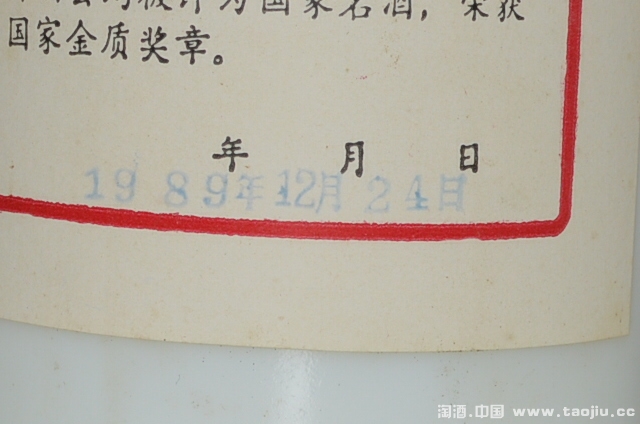 均被评为国家名酒，荣获
国家金质奖章。
年 月 日
1989年12月24日
淘酒.中国 www.taojiu.cc